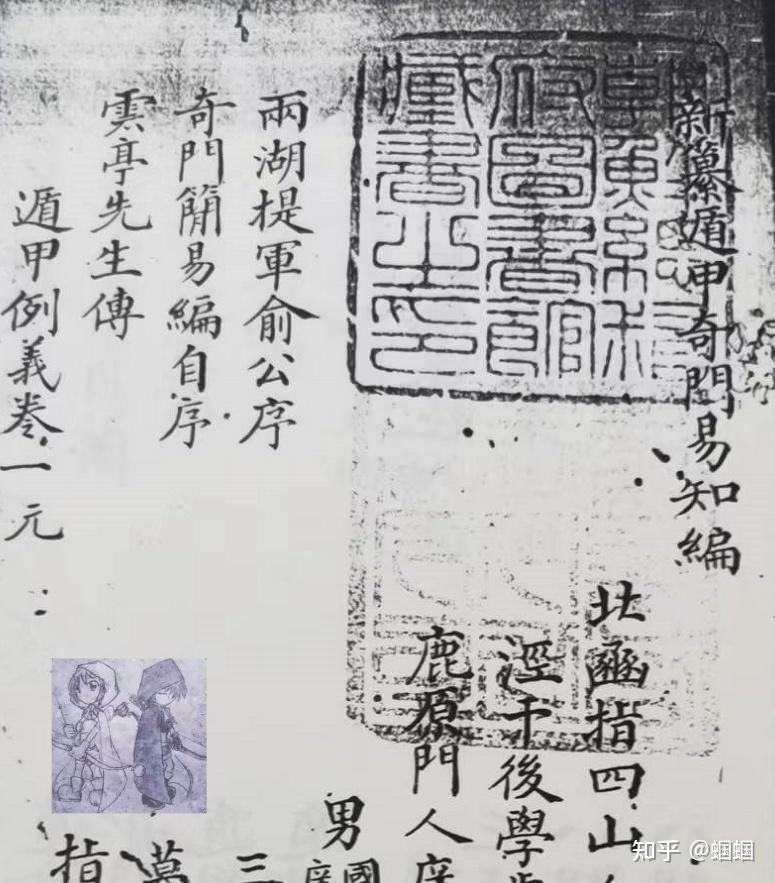 新纂遁甲奇門易知編
北函指四山
涇干後學
鹿原門人
男
國
兩湖提軍俞公序
奇門簡易編自序
雲亭先生傳
遁甲例義卷一元
三
指
圖書館
藏書之印
知乎 @蝈蝈